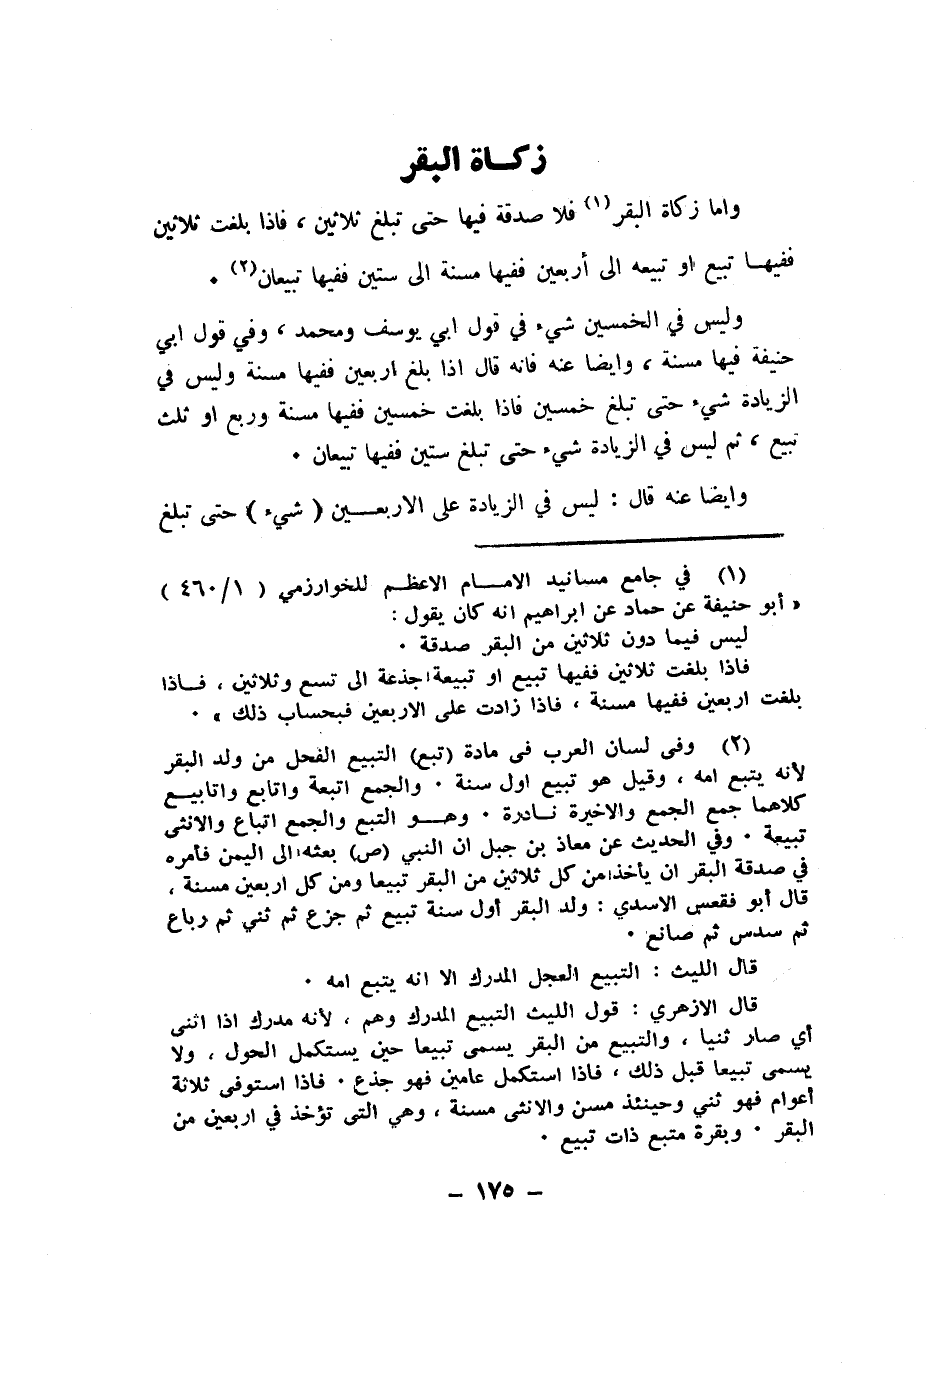 زكــاة البقر
واما زكاة البقر(١) فلا صدقة فيها حتى تبلغ ثلاثين ، فاذا بلغت ثلاثين
ففيهـا تبيع او تبيعه الى أربعين ففيها مسنة الى ستين ففيها تبيعان(٢) ٠
وليس في الخمسين شيء في قول ابي يوسف ومحمد ، وفي قول ابي
حنيفة فيها مسنة ، وايضا عنه فانه قال اذا بلغ اربعين ففيها مسنة وليس في
الزيادة شيء حتى تبلغ خمسين فاذا بلغت خمسين ففيها مسنة وربع او ثلث
تبيع ، ثم ليس في الزيادة شيء حتى تبلغ ستين ففيها تبيعان ٠
وايضا عنه قال : ليس في الزيادة على الاربعـــين ( شيء ) حتى تبلغ
(١) في جامع مسانيد الامـــام الاعظــم للخوارزمي ( ٤٦٠/١ )
« أبو حنيفة عن حماد عن ابراهيم انه كان يقول :
ليس فيما دون ثلاثين من البقر صدقة ٠
فاذا بلغت ثلاثين ففيها تبيع او تبيعة جذعة الى تسع وثلاثين ، فــاذا
بلغت اربعين ففيها مسنة ، فاذا زادت على الاربعين فبحساب ذلك » ٠
(٢) وفى لسان العرب فى مادة (تبع) التبيع الفحل من ولد البقر
لأنه يتبع امه ، وقيل هو تبيع اول سنة ٠ والجمع اتبعة واتابع واتابيــع
كلاهما جمع الجمع والاخيرة نــادرة ٠ وهــو التبع والجمع اتباع والانثى
تبيعة ٠ وفي الحديث عن معاذ بن جبل ان النبي (ص) بعثه الى اليمن فأمره
في صدقة البقر ان يأخذ من كل ثلاثين من البقر تبيعا ومن كل اربعين مسنة ،
قال أبو فقعس الاسدي : ولد البقر أول سنة تبيع ثم جزع ثم ثني ثم رباع
ثم سدس ثم صانع ٠
قال الليث : التبيع العجل المدرك الا انه يتبع امه ٠
قال الازهري : قول الليث التبيع المدرك وهم ، لأنه مدرك اذا اثنى
أي صار ثنيا ، والتبيع من البقر يسمى تبيعا حين يستكمل الحول ، ولا
يسمى تبيعا قبل ذلك ، فاذا استكمل عامين فهو جذع ٠ فاذا استوفى ثلاثة
أعوام فهو ثني وحينئذ مسن والانثى مسنة ، وهي التى تؤخذ في اربعين من
البقر ٠ وبقرة متبع ذات تبيع ٠
– ١٧٥ –